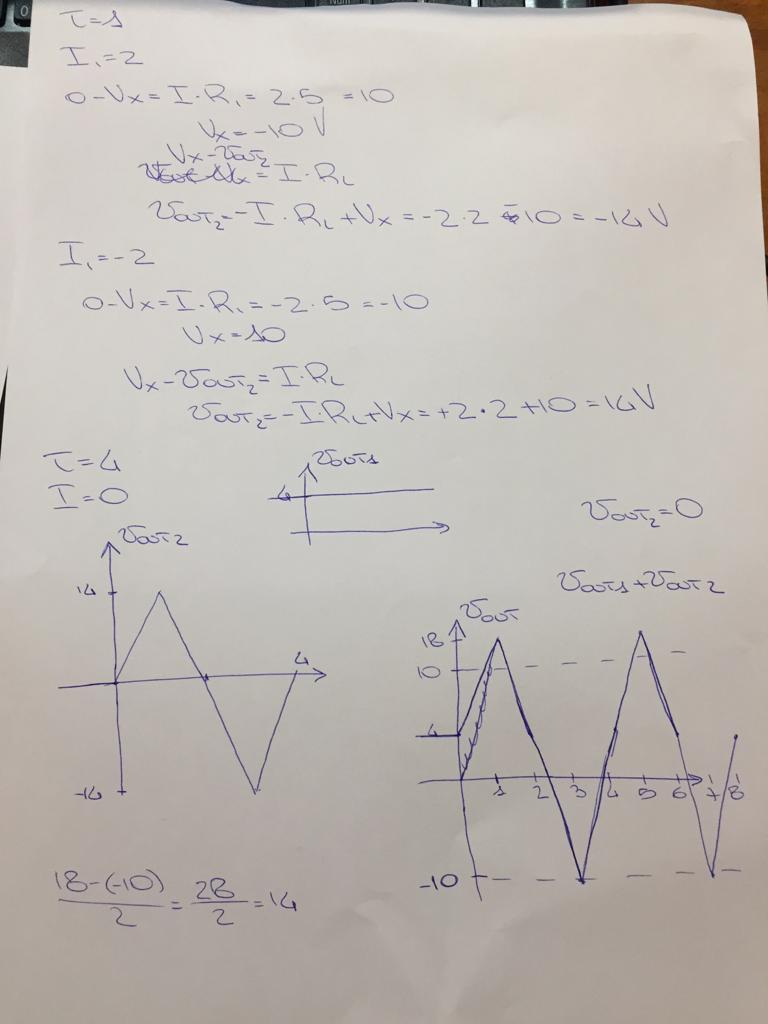 τ=1
I₁=2
0-Vx=I·R₁=2·5=10
Vx=-10 V
Vx-Vout2
=I·RL
Vout2=-I·RL+Vx=-2·2-10=-14V
I₁=-2
0-Vx=I·R₁=-2·5=-10
Vx=10
Vx-Vout2=I·RL
Vout2=-I·RL+Vx=+2·2+10=14V
τ=4
I=0
Vout1
4
Vout2=0
Vout2
14
4
-14
Vout1+Vout2
Vout
18
10
4
1 2 3 4 5 6 7 8
-10
18-(-10)/2=28/2=14